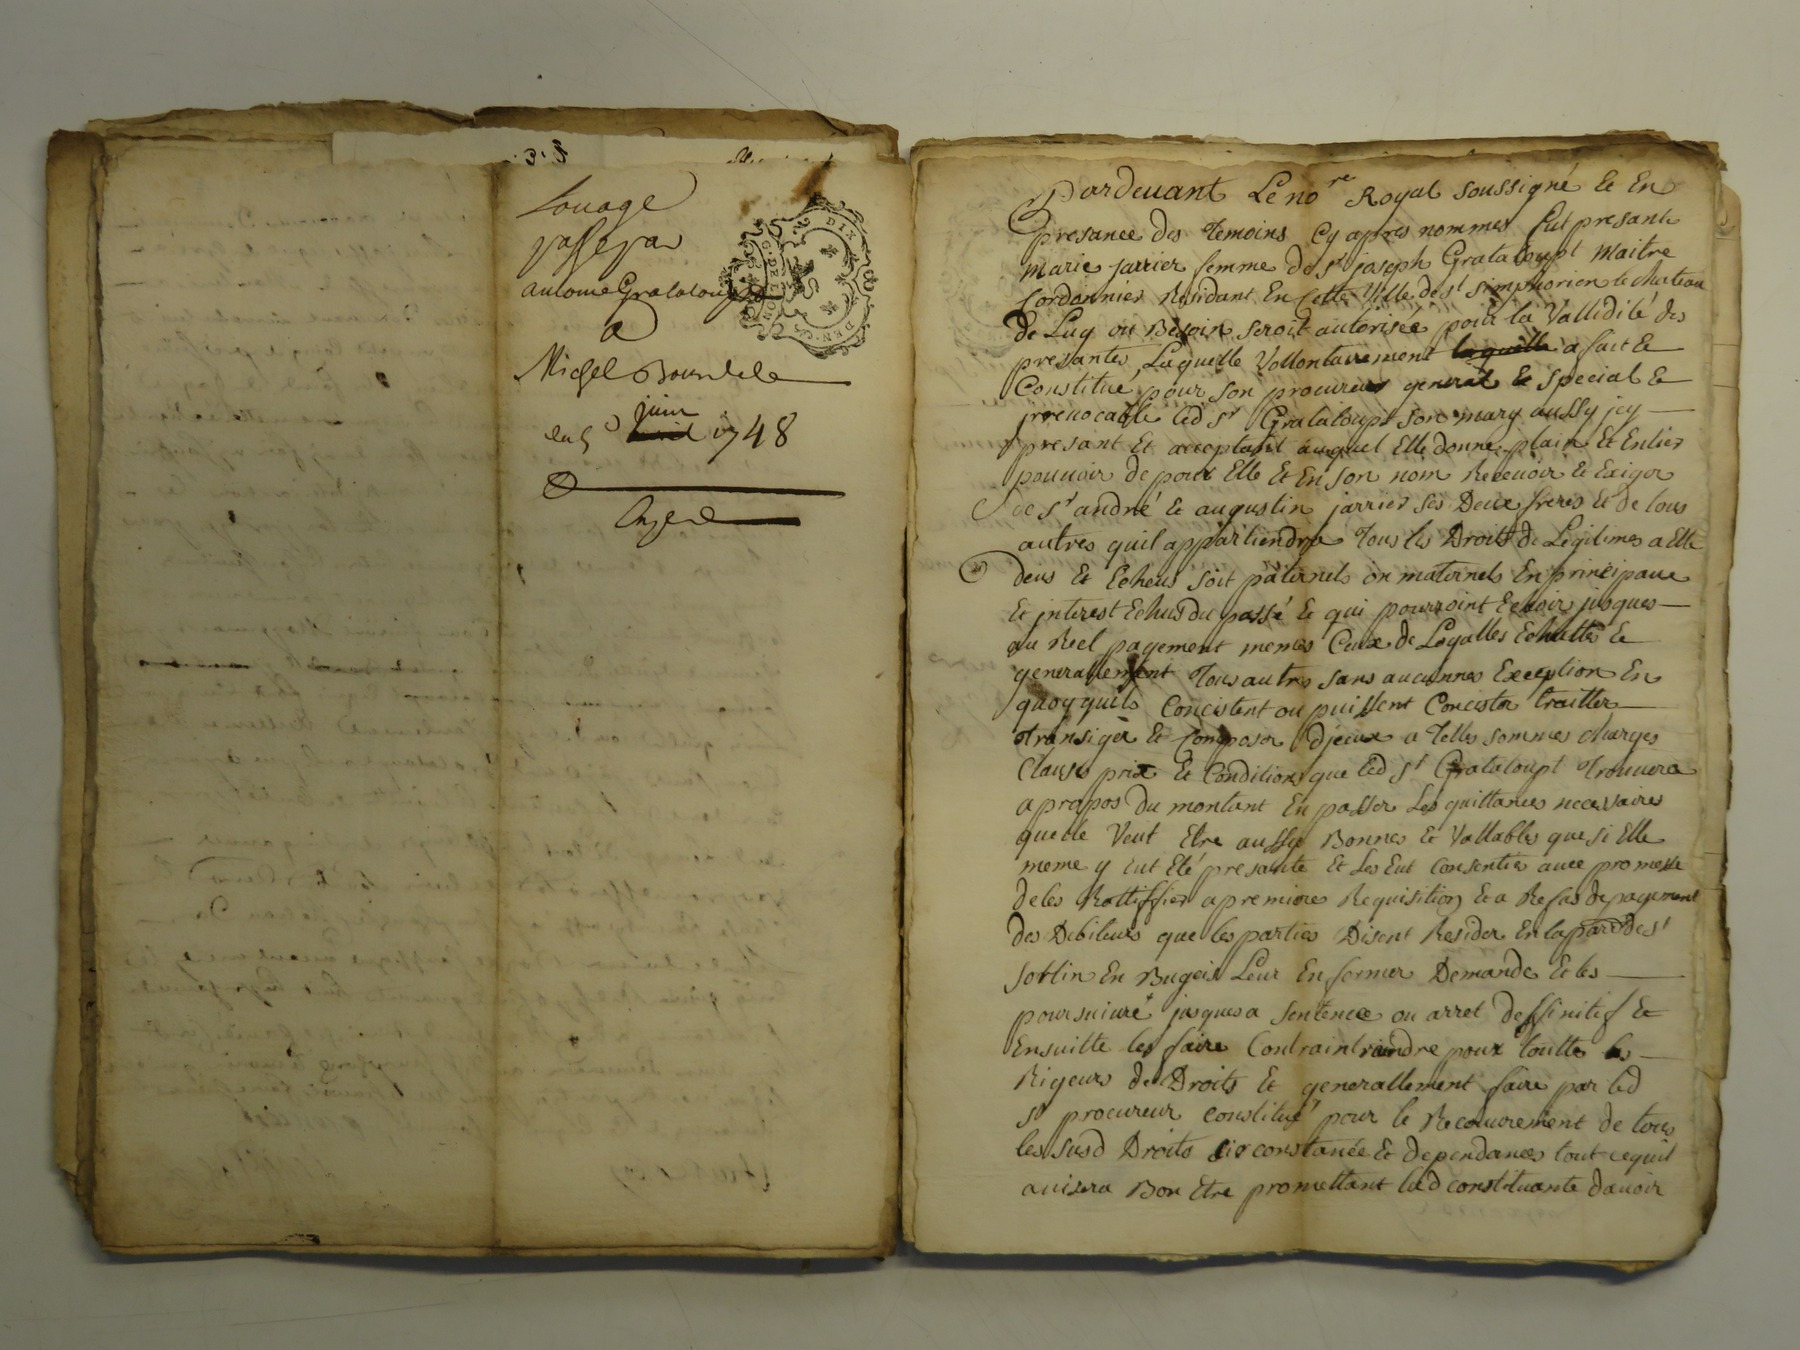 Louage
passé par
antoine Grataloupt
a
Michel Bourdele
du 5e juin
avril 1748
DIX DEN
G. DE LYON
Pardevant Le nore Royal soussigné et En
presance des temoins cy apres nommes fut presante
marie jarrier femme de sr joseph Grataloupt maitre
Cordonnier Residant En Cette Ville de st simphorien le chateau
de Luy ou Besoin seroit autorisée pour la Vallidité des
presantes, Laquelle Vollontairement laquelle a fait et
Constitue pour son procureur general et special et
jrrevocable led sr Grataloupt son mary aussy jcy
present Et acceptant auquel Elle donne plain Et Entier
pouvoir de pour Elle Et En son nom Recevoir et Exiger
de sr andré et augustin jarrier ses Deux freres et de tous
autres quil appartiendra tous les Droits de Legitimes a Elle
deus Et Echeus soit paternels ou maternels En principaux
Et jnterest Echus du passé et qui pourroint Echoir jusques
au Reel payement memes Ceux de Legalles Echuttes et
generallement tous autres sans aucunnes Exception En
quoy quils Concistent ou puissent Concister traitter
transiger Et Composer Djceux a telles sommes charges
Clauses prix Et Conditions que led sr Grataloupt trouvera
a propos du montant En passer Les quittances necessaires
quelle Veut Etre aussy Bonnes et Vallables que si Elle
meme y Eut Eté presante Et Les Eut Consenties avec promesse
de les Rattiffier a premiere Requisition et a Refus de payement
des Debiteurs que les parties Disent Resider En la parr de st
sorlin En Bugeis Leur En former Demande et les
poursuivre jusques a sentence ou arret deffinitif et
Ensuitte les faire Contraindre pour touttes les
Rigeurs des Droits Et generallement faire par led
sr procureur constitué pour le Recouvrement de tous
les susd Droits circonstance Et dependances tout cequil
avisera Bon Etre promettant lad constituante davoir